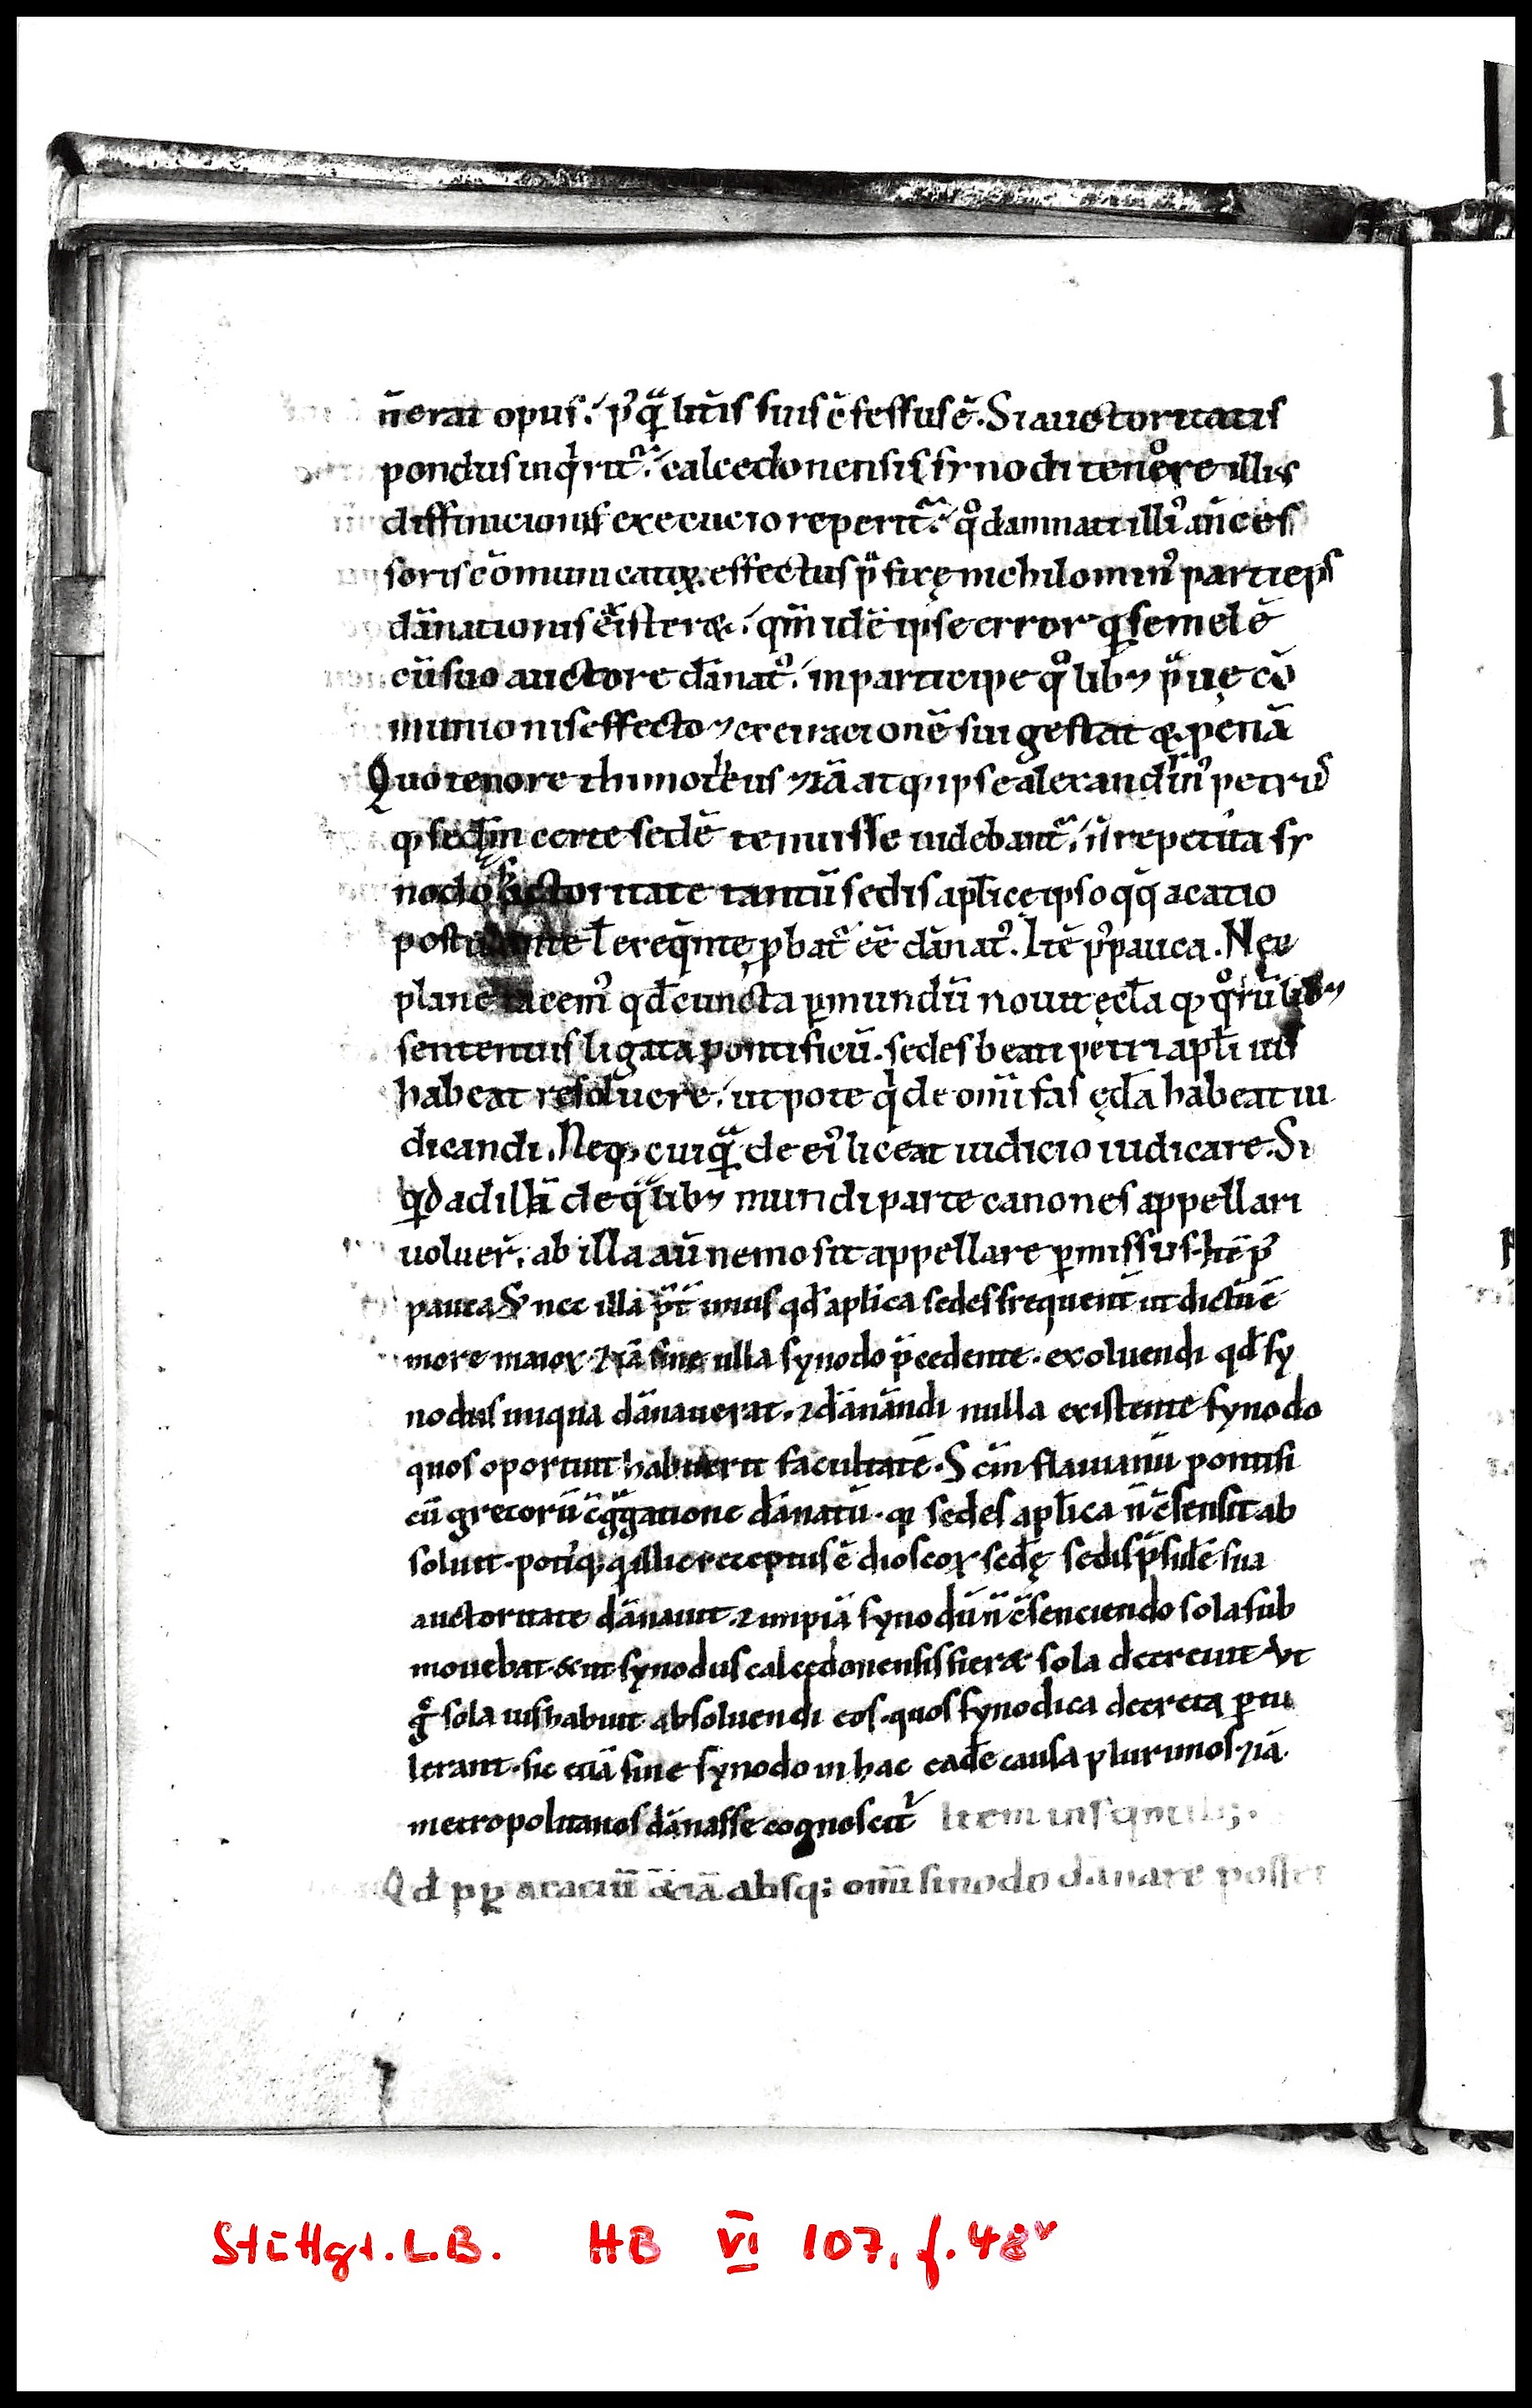 n̄ erat opus. p᷒q̄ȧ litt̄is suis ē fessus ē. Si auctoritatis
pondus inq̇rit᷑. calcedonensis synodi tenore illis
diffinicionis execucio reperit᷑. qͦ damnati illi᷒ an̄ces
soris cōmunicatoꝝ. effectus p̄fixę nichilomin᷒ particeps
dānationis existeret. qm̄ idē ipse error qͥ semel ē
cū suo auctore dānat᷒. in participe qͦlibꝫ p̄uę cō
munionis effecto ⁊ execracionē sui gestat & penā
Quo tenore thimotheus ⁊iā atqꝫ ipse alexandrin᷒ petrus
qͥ secd̄m certe sedē tenuisse uidebant᷑. n̄ repetita sy
nodo auctoritate tantū sedis apl̄icę ipso qͦqͣ acatio
postulante l̄ exeq̄nte ꝓbat᷑ ēē dānat᷒. Itē p᷒ pauca. Nec
plane tacem᷒ qd̄ cuncta ꝑ mundū nouit ęcl̄a qꝫ qͦrūlibꝫ
sententiis ligata pontificū. sedes beati petri apl̄i ius
habeat resoluere. utpote q̇ de omī fas ęcl̄a habeat iu
dicandi. Neqꝫ cuiqͣ̄ de ei᷒ liceat iudicio iudicare. Si
qͥd ad illā de qͣlibꝫ mundi parte canones appellari
uoluer̄. ab illa aū nemo sit appellare ꝑmissus. Itē p᷒
pauca. Sꝫ nec illa p̄t̄imus qd̄ apl̄ica sedes frequent̄ ut dictū ē
more maioꝝ ⁊iā sine ulla synodo p̄cedente. exoluendi qd̄ sy
nodus iniqua dānauerat. ⁊ dānandi nulla existente synodo
quos oportuit habuerit facultatē. Scīm flauianū pontifi
cū grecorū c̄gͣgatione dānatū. qͥ sedes apl̄ica n̄ c̄sensit ab
soluit. poti᷒qꝫ qͥ illic receptus ē dioscoꝝ sed̄ę sedis p̄sulē sua
auctoritate dānauit. ⁊ impiā synodū n̄ c̄senciendo sola sub
mouebat. & ut synodus calcedonensis fieret sola decreuit. Vt
gͦ sola ius habuit absoluendi eos. quos synodica decreta ꝑcu
lerant. sic etiā sine synodo in hac eadē causa plurimos ⁊iā
metropolitanos dānasse cognoscit᷑ Item in seqentibꝫ.
Qd̄ ppt̄ acaciū ⁊iā absqꝫ omī sinodo dānare posset
Stuttgt. L.B. HB VI 107, f. 48v